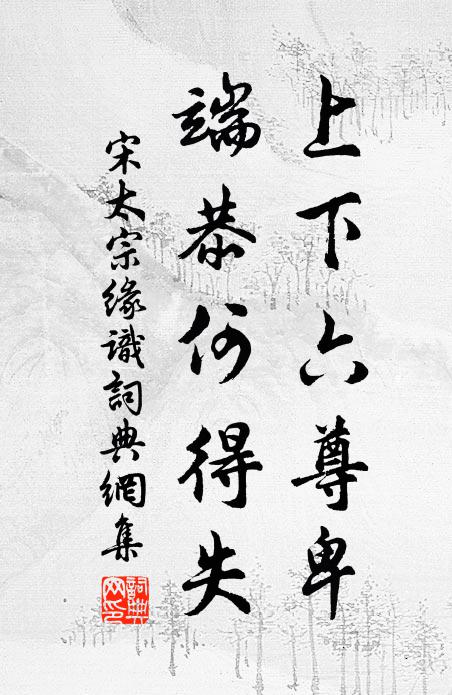 上下六尊卑
端恭何得失
宋太宗緣識詞典網集
詞典網印